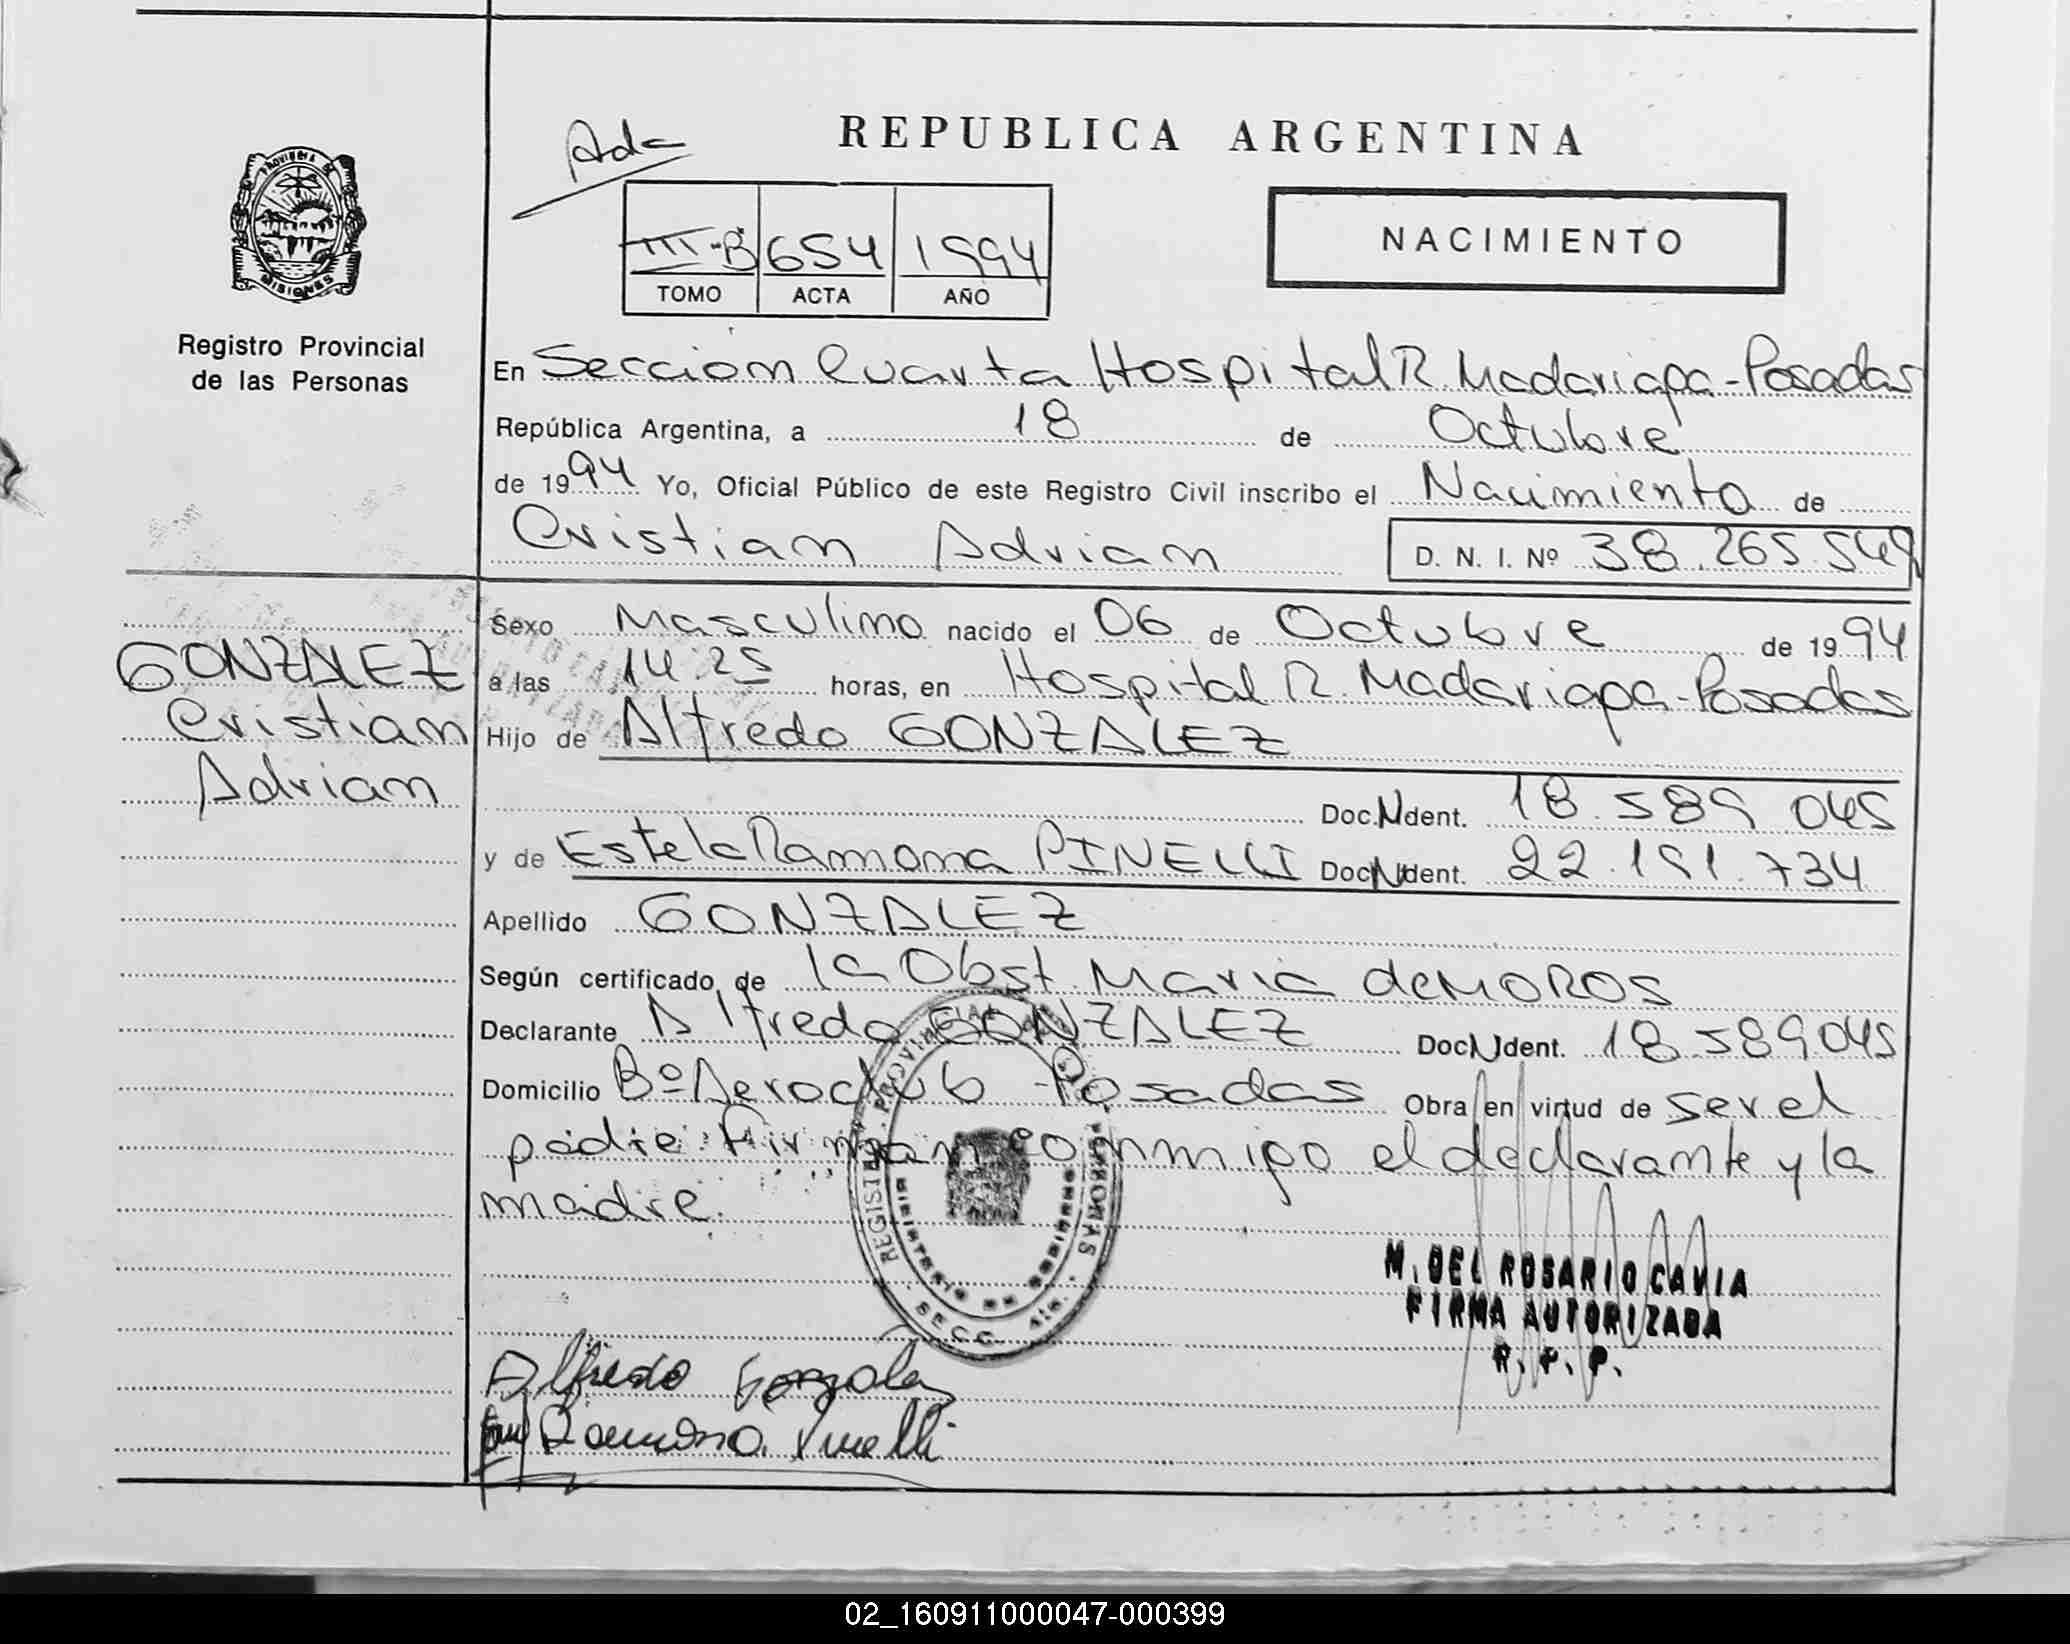 REPUBLICA ARGENTINA
Ada
PROVINCIA DE MISIONES
III-B 654 1994
TOMO ACTA AÑO
NACIMIENTO
Registro Provincial
de las Personas
En Seccion Cuarta Hospital R. Madariaga-Posadas
República Argentina, a 18 de Octubre
de 1994 Yo, Oficial Público de este Registro Civil inscribo el Nacimiento de
Cristian Adrian D. N. I. Nº 38.265.549
GONZALEZ
Cristian
Adrian
Sexo Masculino nacido el 06 de Octubre de 1994
a las 14 25 horas, en Hospital R. Madariaga-Posadas
Hijo de Alfredo GONZALEZ
Doc.Ndent. 18.589 045
y de Estela Ramona PINELLI DocNdent. 22.191.734
Apellido GONZALEZ
Según certificado de la Obst. Maria deMOROS
Declarante Alfredo GONZALEZ DocNdent. 18.589045
Domicilio Bº Aeroclub Posadas Obra en virtud de ser el
padre: Firman conmigo el declarante y la
madre.
REGISTRO PROVINCIAL DE LAS PERSONAS
MINISTERIO DE GOBIERNO
SECC. 4ta.
M. DEL ROSARIO CAVIA
FIRMA AUTORIZADA
R. P. P.
Alfredo Gonzalez
Ramona Pinelli
02_160911000047-000399